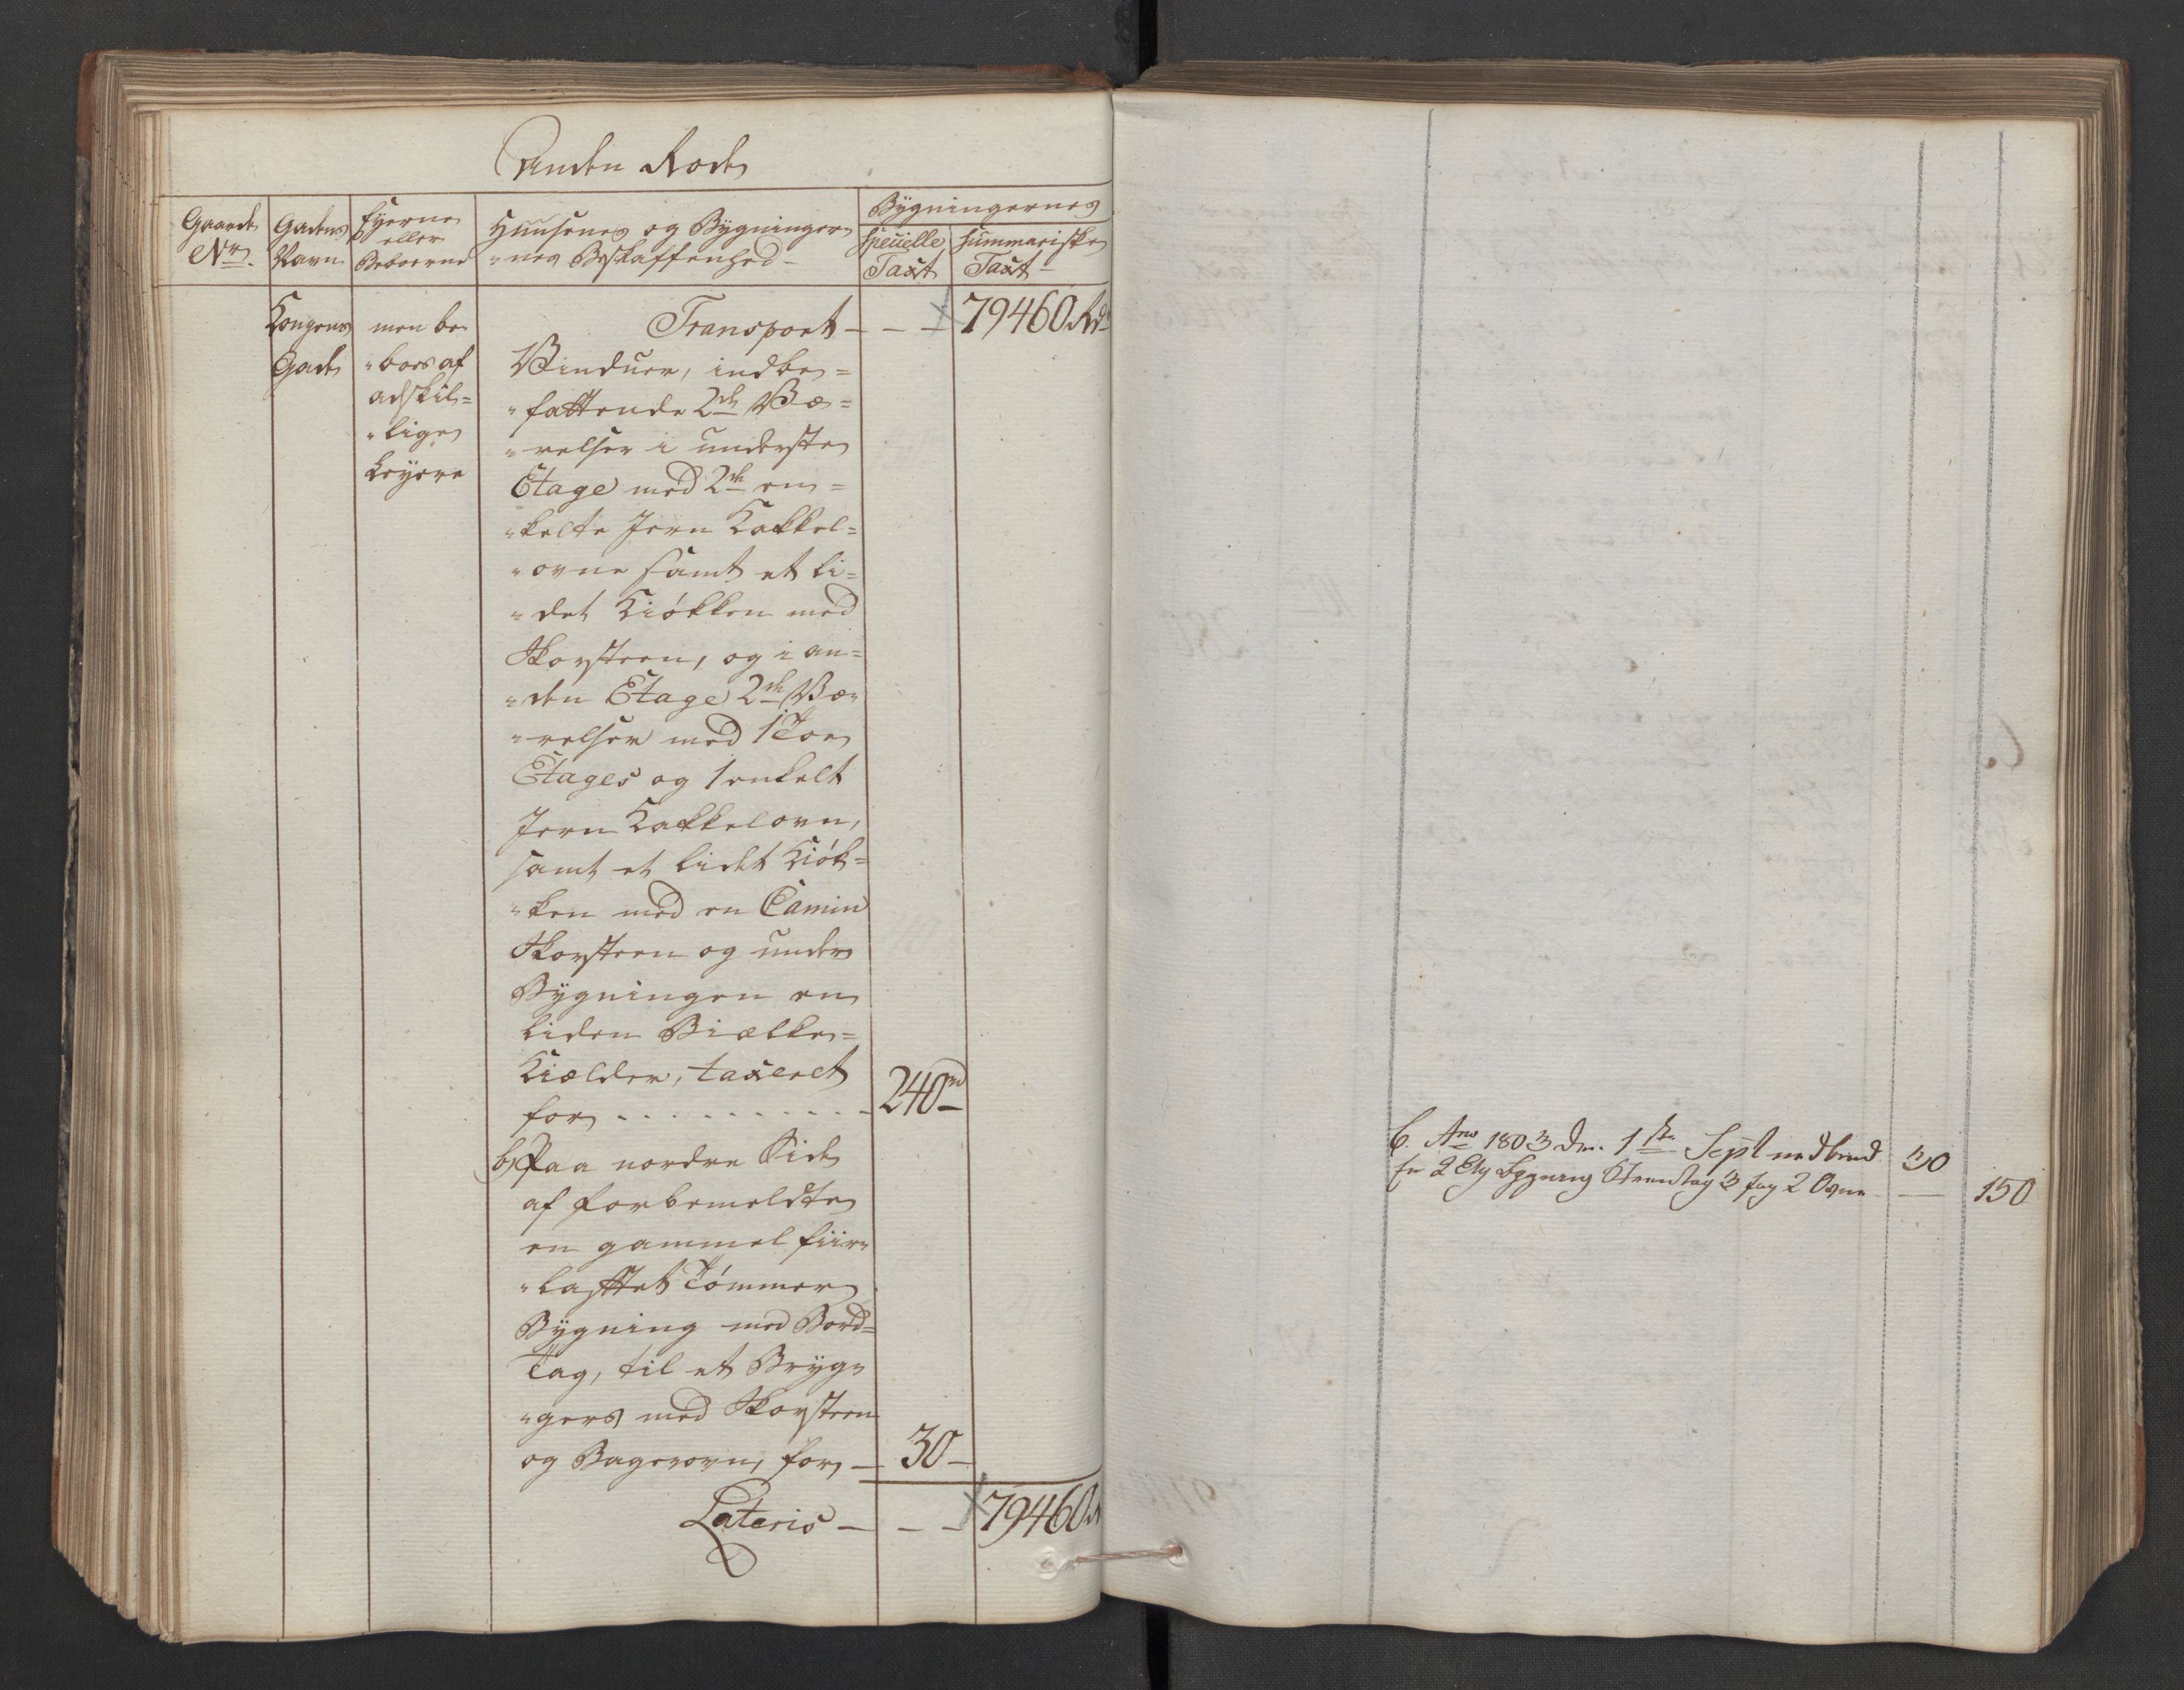 Anden Rode
Gaards
No
Gadens
Navn
Eyerne
eller
Beboerne
Huusenes og Bygninger
"nes Beskaffenhed
Bygningernes
Speciélle
Taxt
Summariske
Taxt
Kongens
Gade
men be
"boes af
adskil=
"lige
Leyere
Transport - - - 79460 Rd
Vinduer, indbe=
"fattende 2de Væ=
"relser i underste
Etage med 2de en=
"kelte Jern Kakkel=
"ovne samt et li=
"det Kiökken med
Skorsteen, og i an=
"den Etage 2de Væ"
"relser med 1 Toe
Etages og 1 enkelt
Jern Kakkelovn,
samt et lidet Kiök=
"ken med en Camin
Skorsteen og under
Bygningen en
liden Bielke=
Kielder, taxeret
for - - - - - - - - - 240 rd
b) Paa nordre Side
af forbemeldte
en gammel fiir"
"lafftet Tömmer
Bygning med Bord=
Tag, til et Bryg"
"gers med Skorsteen
og Bagerovn, for - 30 -
Lateris - - - 79460 Rd
C. Ano 1803 den 1te Sept nedbrud 30
2 Etg Bygning Steentag 3 fag 2 Ovne - 150